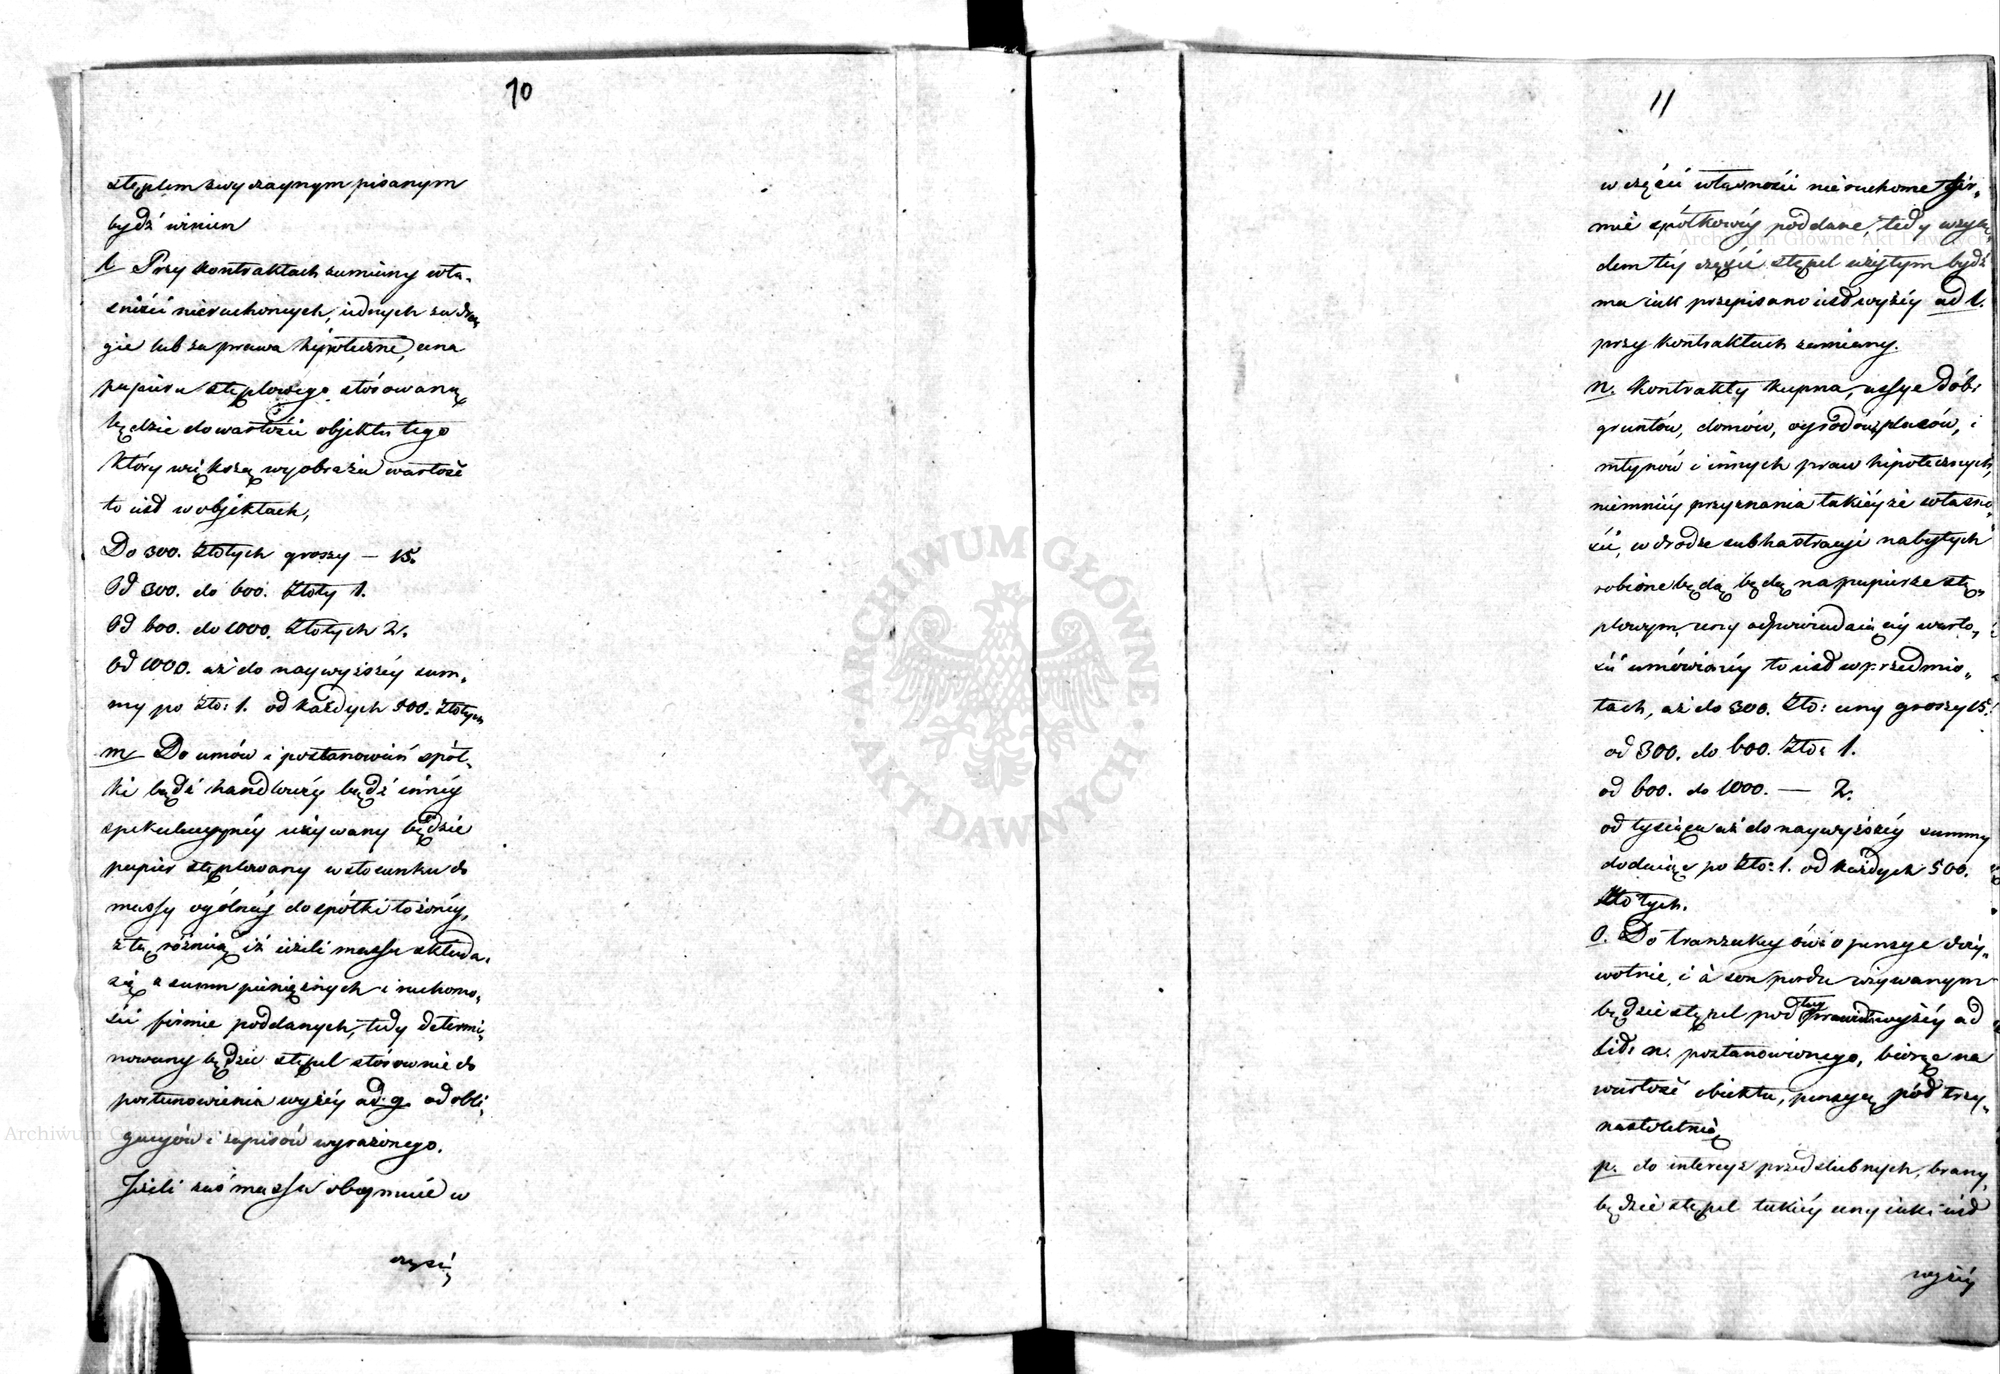 10
stęplem zwyczaynym pisanym
bydź winien
l. Przy kontraktach zamiany wła-
sności nieruchomych, iednych za dru-
gie lub za prawa hipoteczne, cena
papieru stęplowego stósowaną
będzie do wartości objektu tego
który większą wyobraża wartość
to iest w objektach,
Do 300. złotych groszy — 15.
Od 300. do 600. złoty 1.
Od 600. do 1000. złotych 2.
Od 1000. aż do naywyższéy sum-
my po zło: 1. od każdych 500. złotych
m. Do umów i postanowień spół-
ki bądź handlowéy bądź innéy
spekulacyinéy używany będzie
papier stęplowany w stosunku do
massy ogólnéy do spółki łożonéy,
z tą różnicą iż ieżeli massa składa
się z summ pieniężnych i ruchomo-
ści firmie poddanych, tedy determi-
nowany będzie stępel stósownie do
postanowienia wyżéy ad. g. od obli-
gacyów i zapisów wyrażonego.
Jeżeli zaś massa obeymuie w
części
11
w części własności nieruchome fir-
mie spółkowéy poddane, tedy wzglę-
dem téy części stępel użytym bydź
ma iak przepisano iest wyżéy ad l.
przy kontraktach zamiany.
n. Kontrakty kupna, cessye dóbr
gruntów, domów, ogrodów, placów, i
młynów i innych praw hipotecznych,
niemniéy przyznania takiéyże własno-
ści, w drodze subhastacyi nabytych
robione będą będą na papierze stę-
plowym, ceny odpowiadaiącéy warto-
ści umówionéy to iest w przedmio-
tach, aż do 300. zło: ceny groszy 15.
od 300. do 600. zło: 1.
od 600. do 1000. — 2.
od tysiąca aż do naywyższéy summy
dodaiąc po zło: 1. od każdych 500.
złotych.
o. Do tranzakcyów o pensye doży-
wotnie, i à fon perdu używanym
będzie stępel podług prawidła wyżéy ad
lit: n. postanowionego, biorąc na
wartość obiektu, pensyą pół trzy-
nastoletnią
p. do intercyz przedślubnych, brany
będzie stępel takiéy ceny iaki iest
wyżéy
ARCHIWUM GŁÓWNE AKT DAWNYCH
Archiwum Główne Akt Dawnych
Archiwum Główne Akt Dawnych